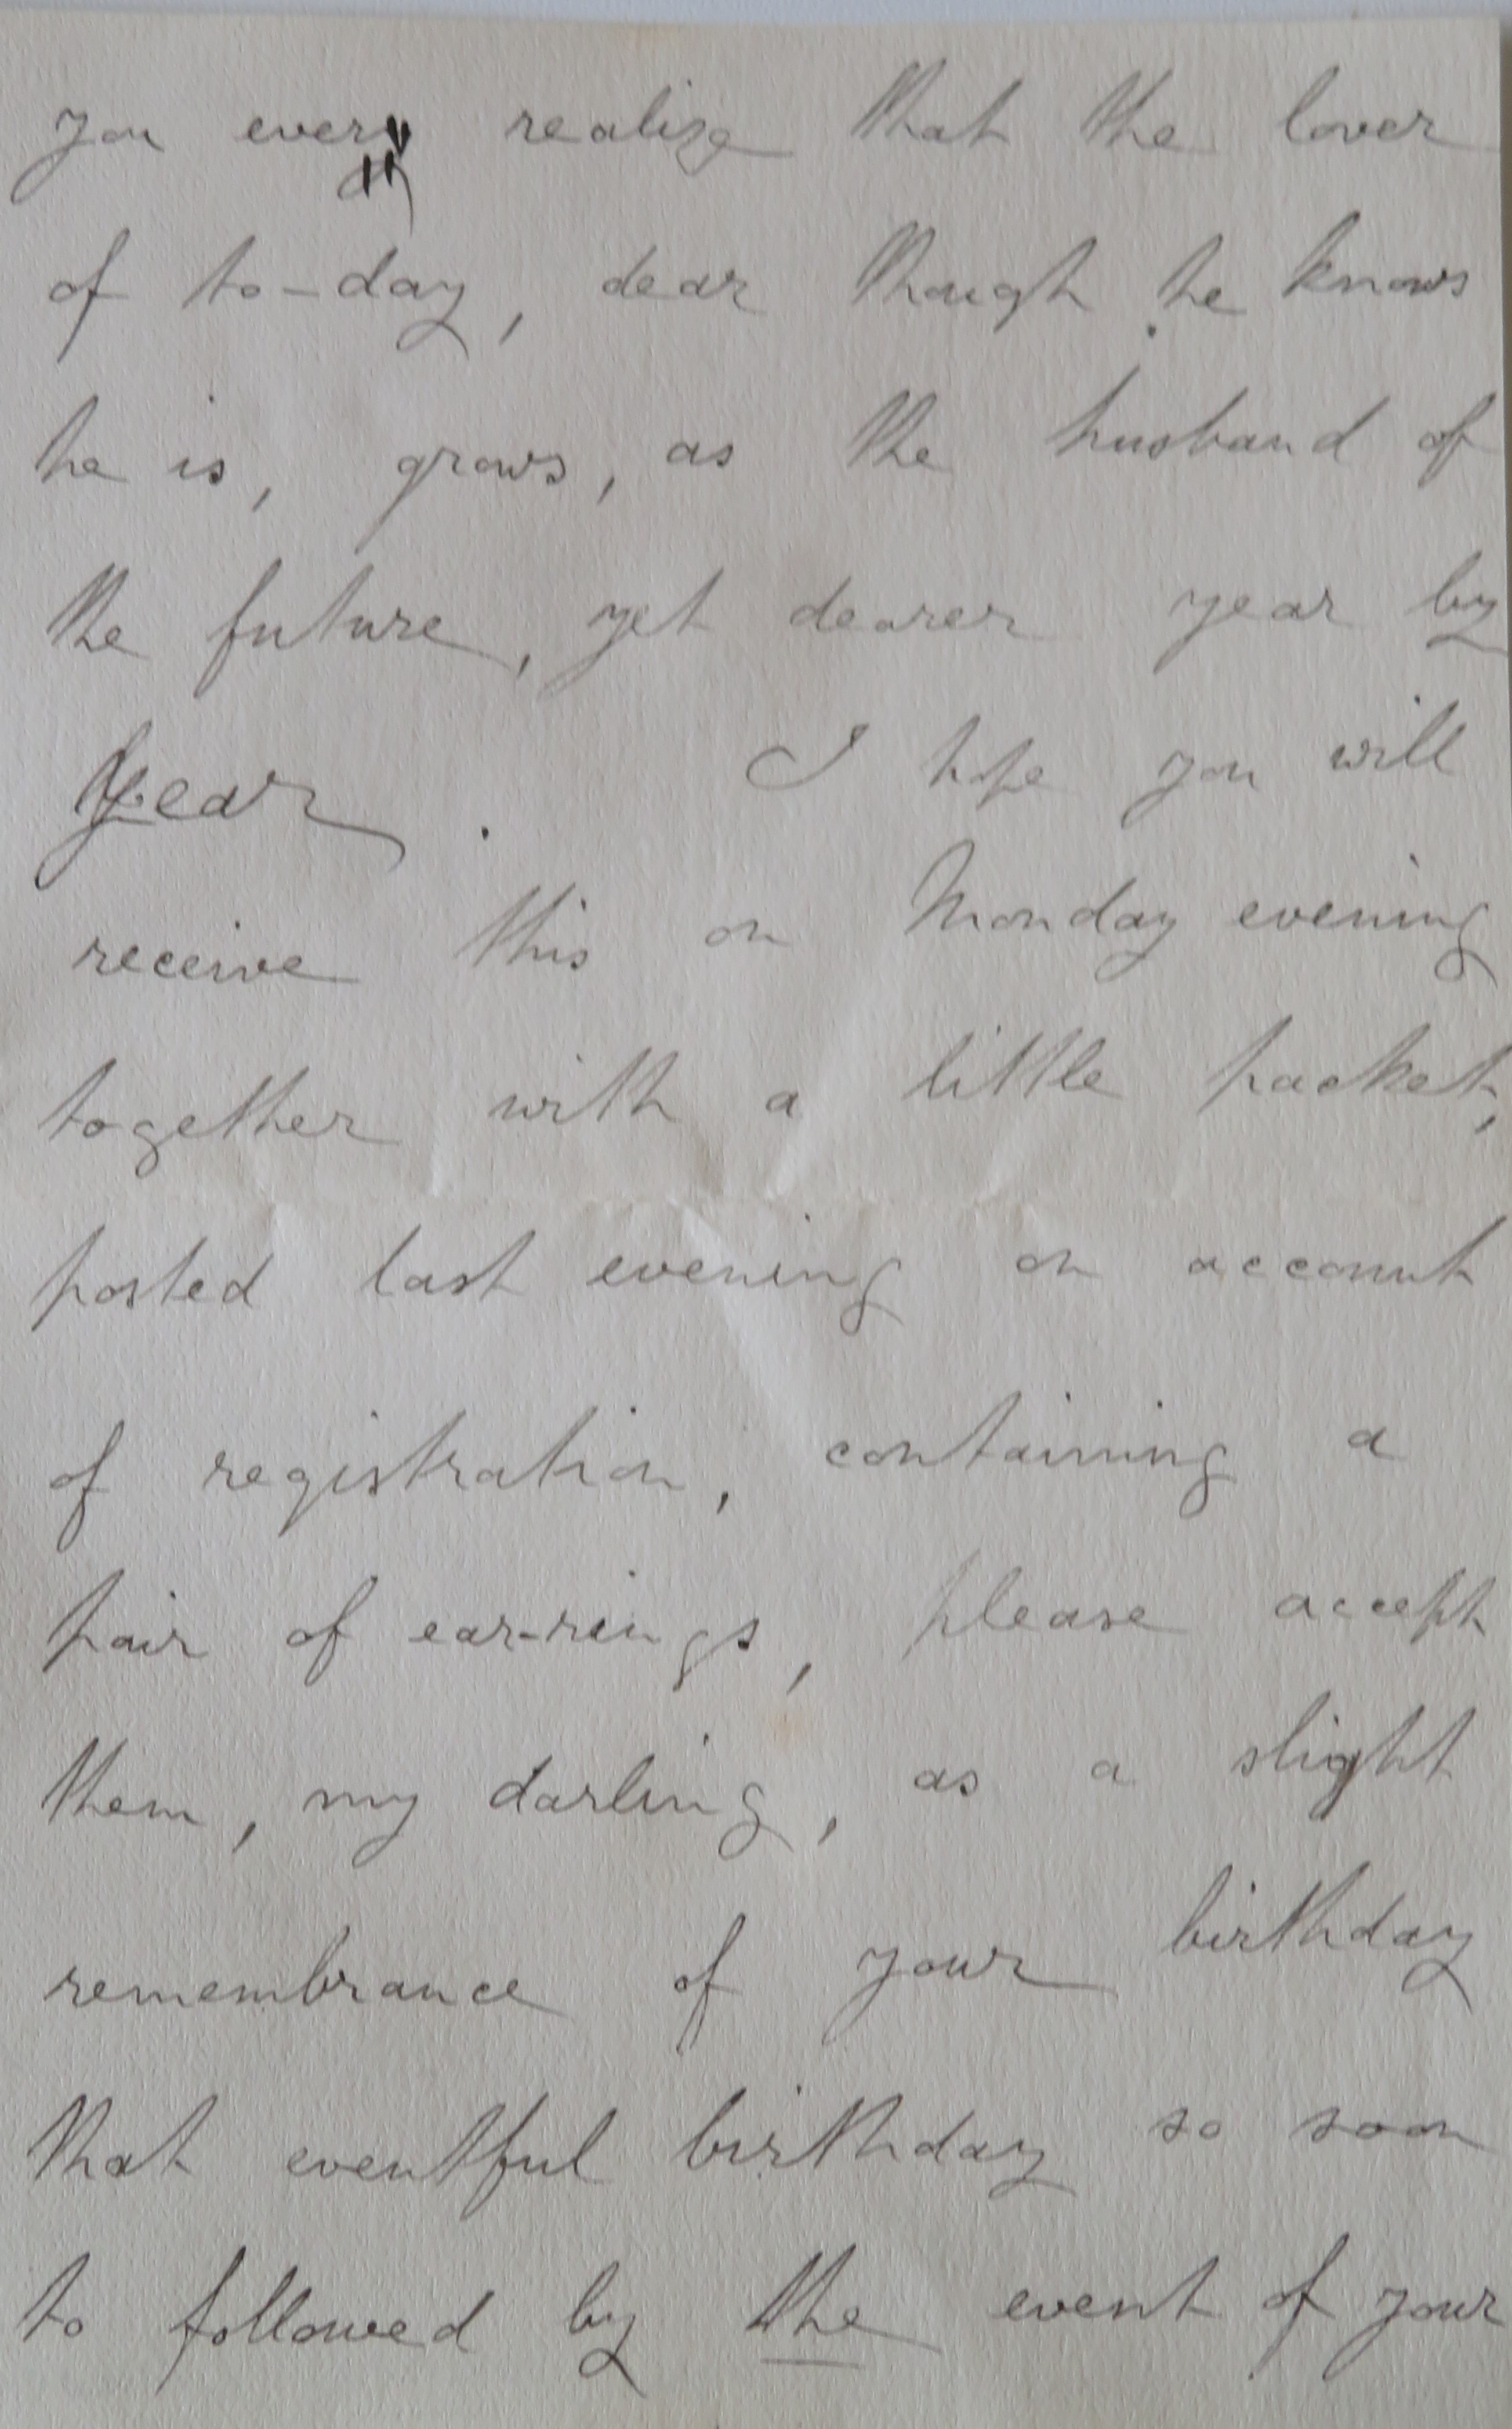 you every realize that the lover
of to-day, dear though he knows
he is, grows, as the husband of
the future, yet dearer year by
year. I hope you will
receive this on Monday evening
together with a little packet,
posted last evening on account
of registration, containing a
pair of ear-rings, please accept
them, my darling, as a slight
remembrance of your birthday
that eventful birthday so soon
to followed by the event of your